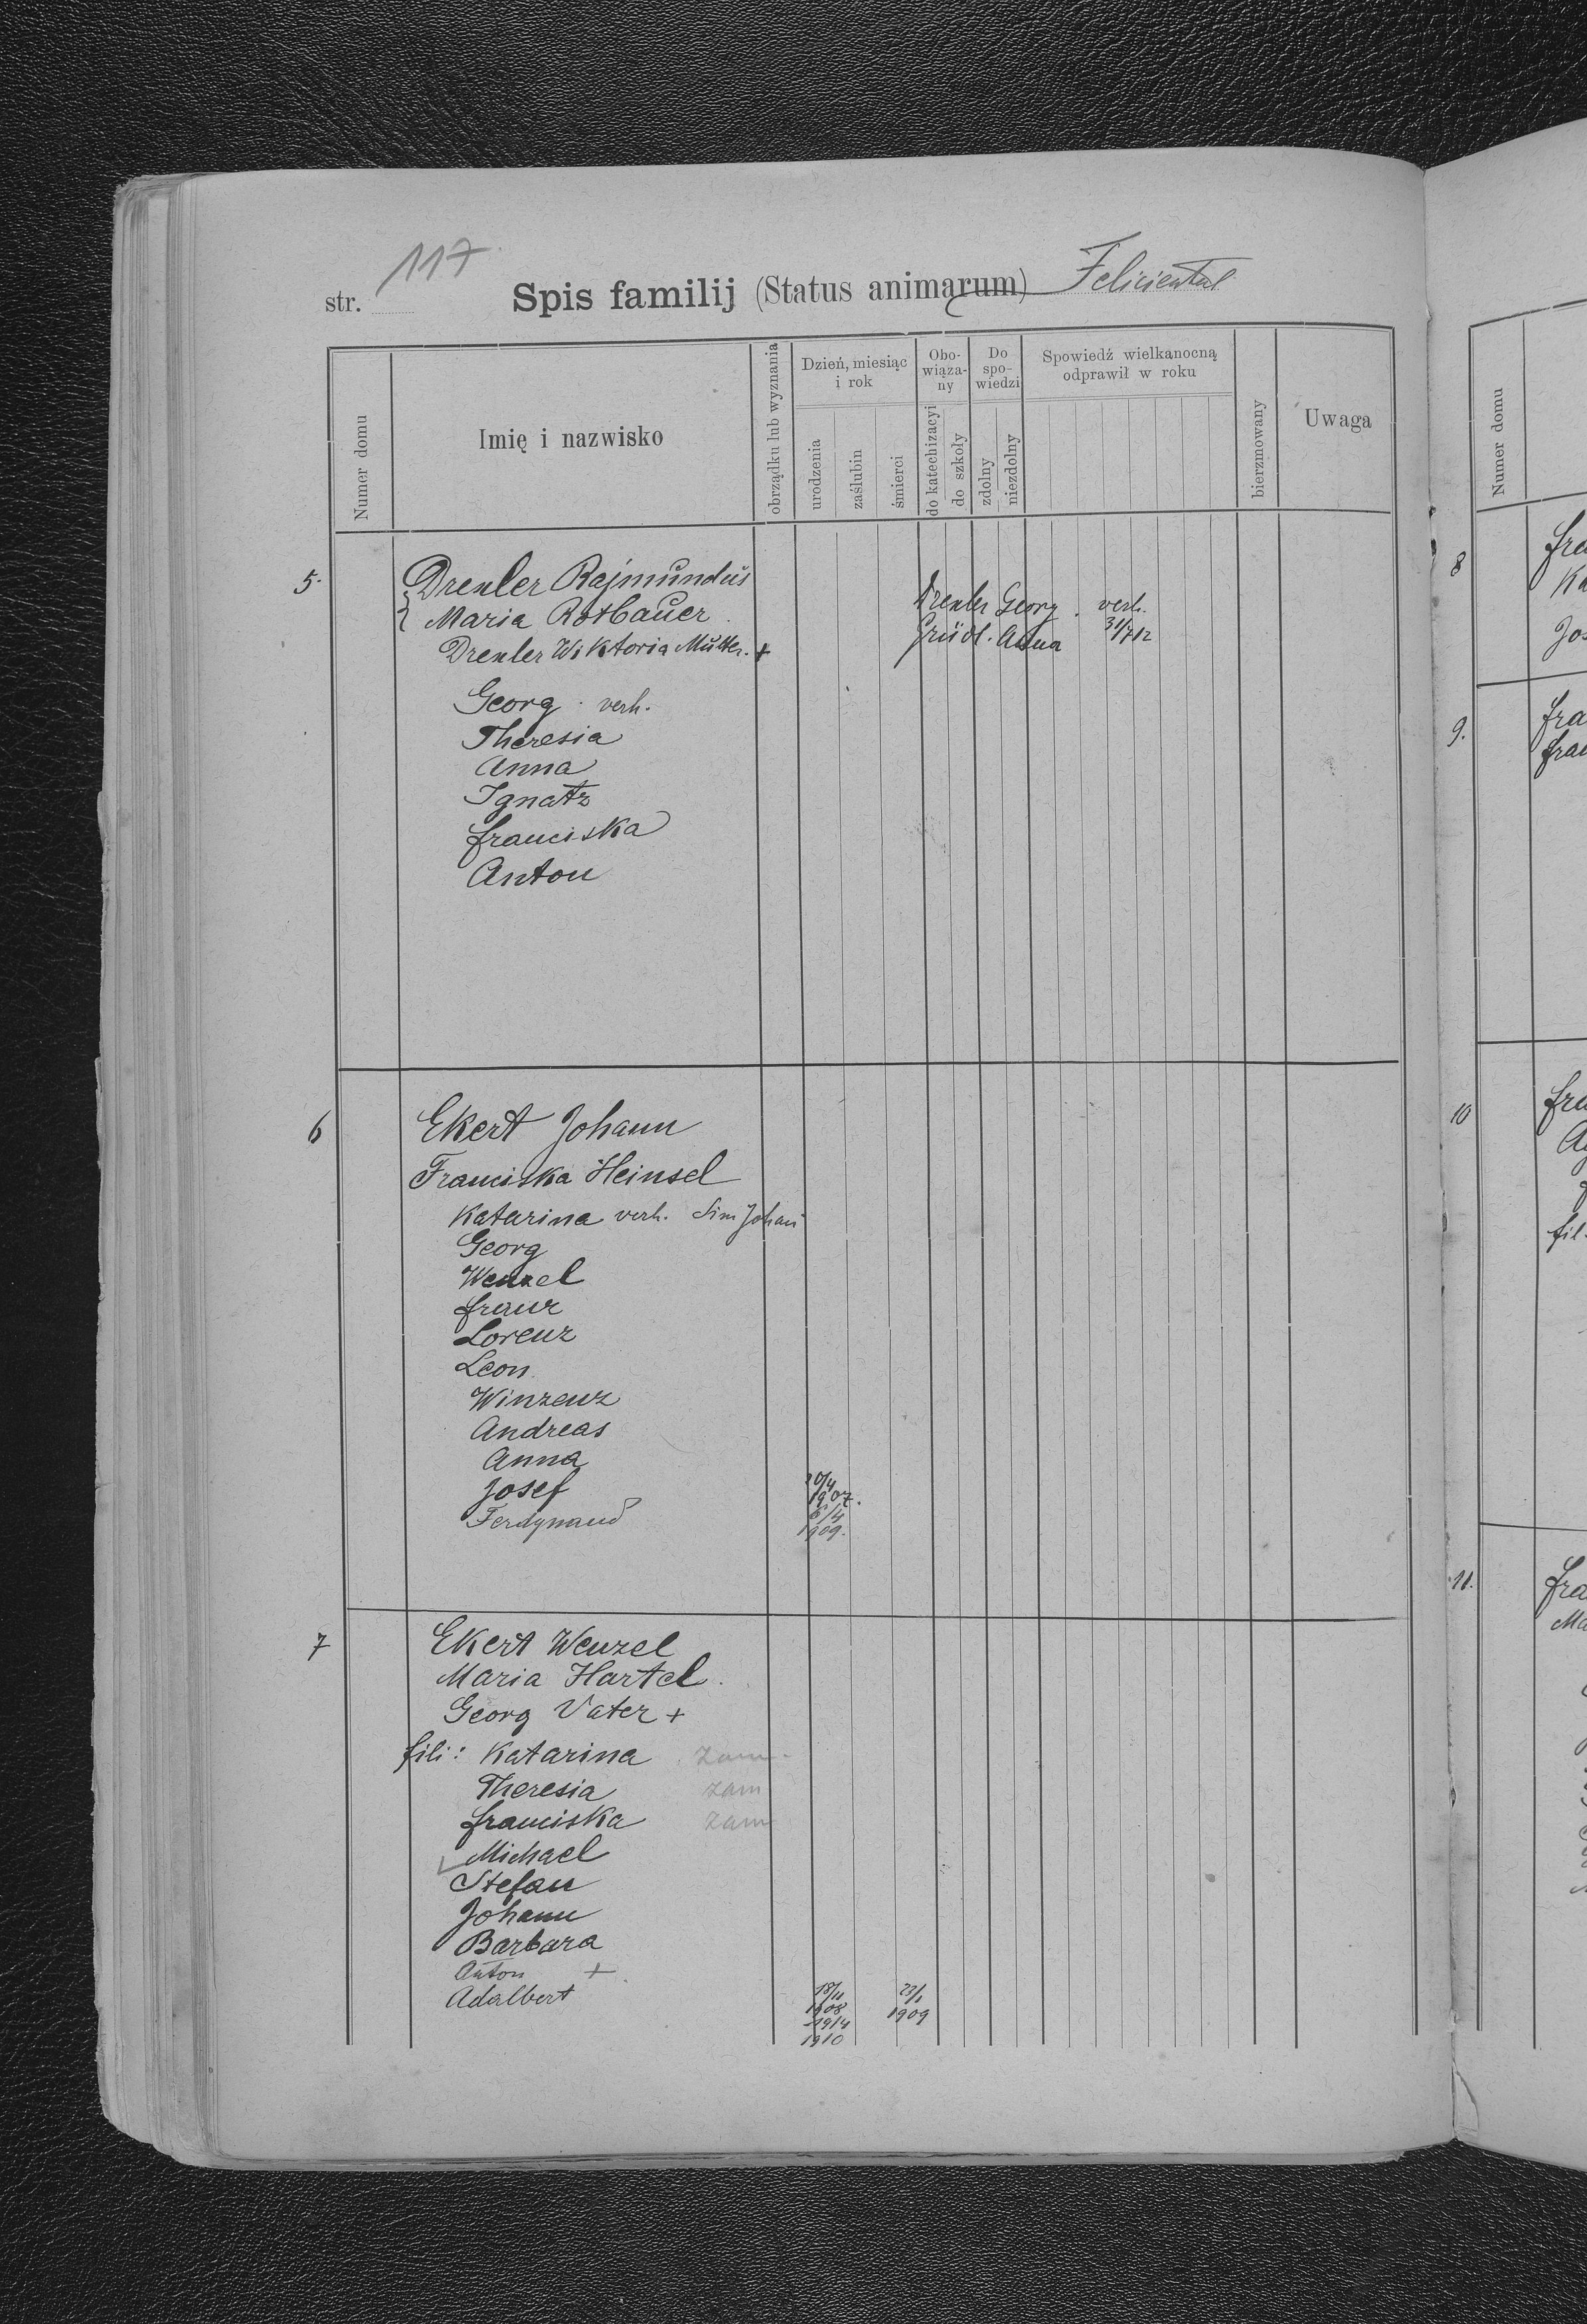 117
str. Spis familij (Status animarum) Felicienthal
Numer domu
Imię i nazwisko
obrządku lub wyznania
Dzień, miesiąc i rok
urodzenia
zaślubin
śmierci
Obowiązany
do katechizacyi
do szkoły
Do spowiedzi
zdolny
niezdolny
Spowiedź wielkanocną odprawił w roku
bierzmowany
Uwaga
5. Drexler Rajmundus
Maria Rotbauer
Drexler Wiktoria Mutter. +
Drexler Georg . verh.
Anna 31/7 12
Georg verh.
Theresia
Anna
Ignatz
franciska
Anton
6 Ekert Johann
Franciska Heinsel
Katarina verh. Sim Johan
Georg
Wenzel
franz
Lorenz
Leon
Winzenz
Andreas
Anna
Josef 20/4 1907.
Ferdynand 6/4 1909.
7 Ekert Wenzel
Maria Hartel
Georg Vater +
fili: Katarina zam
Theresia zam
franciska zam
Michael
Stefan
Johann
Barbara
Anton + 18/11 1908 23/1 1909
Adalbert 1914 1910
Numer domu
8
9.
10
fil.
11.